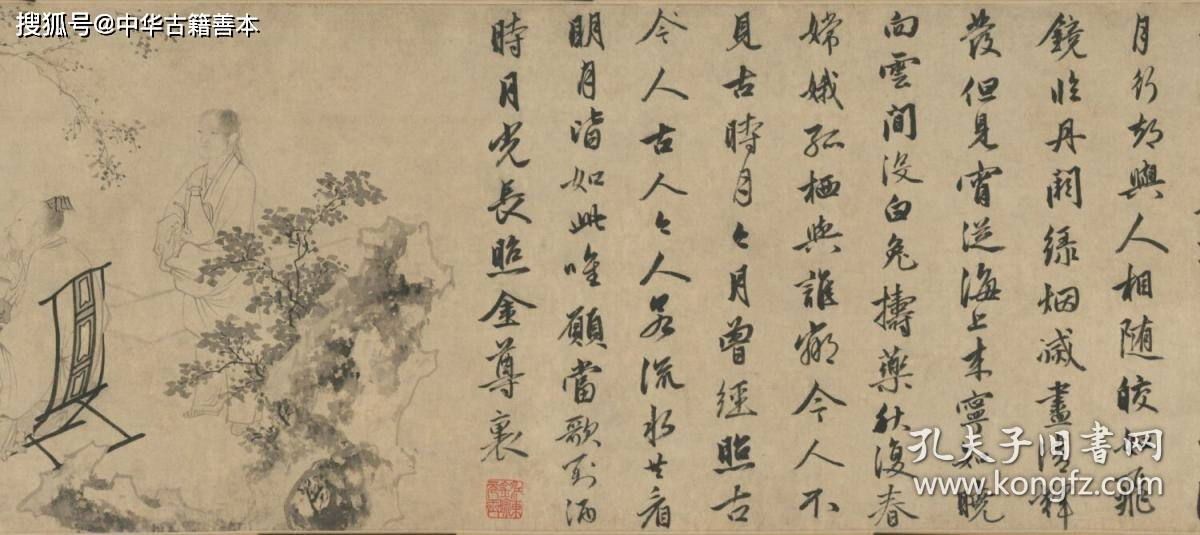 搜狐号@中华古籍善本
月行却與人相随皎如飛
鏡臨丹闕緑烟滅盡清輝
發但見宵從海上来寧知曉
向雲間没白兔擣藥秋復春
嫦娥孤栖與誰鄰今人不
見古時月々月曾經照古
今人古人々人若流水共看
明月皆如此唯願當歌對酒
時月光長照金尊裏
孔夫子旧书网
www.kongfz.com